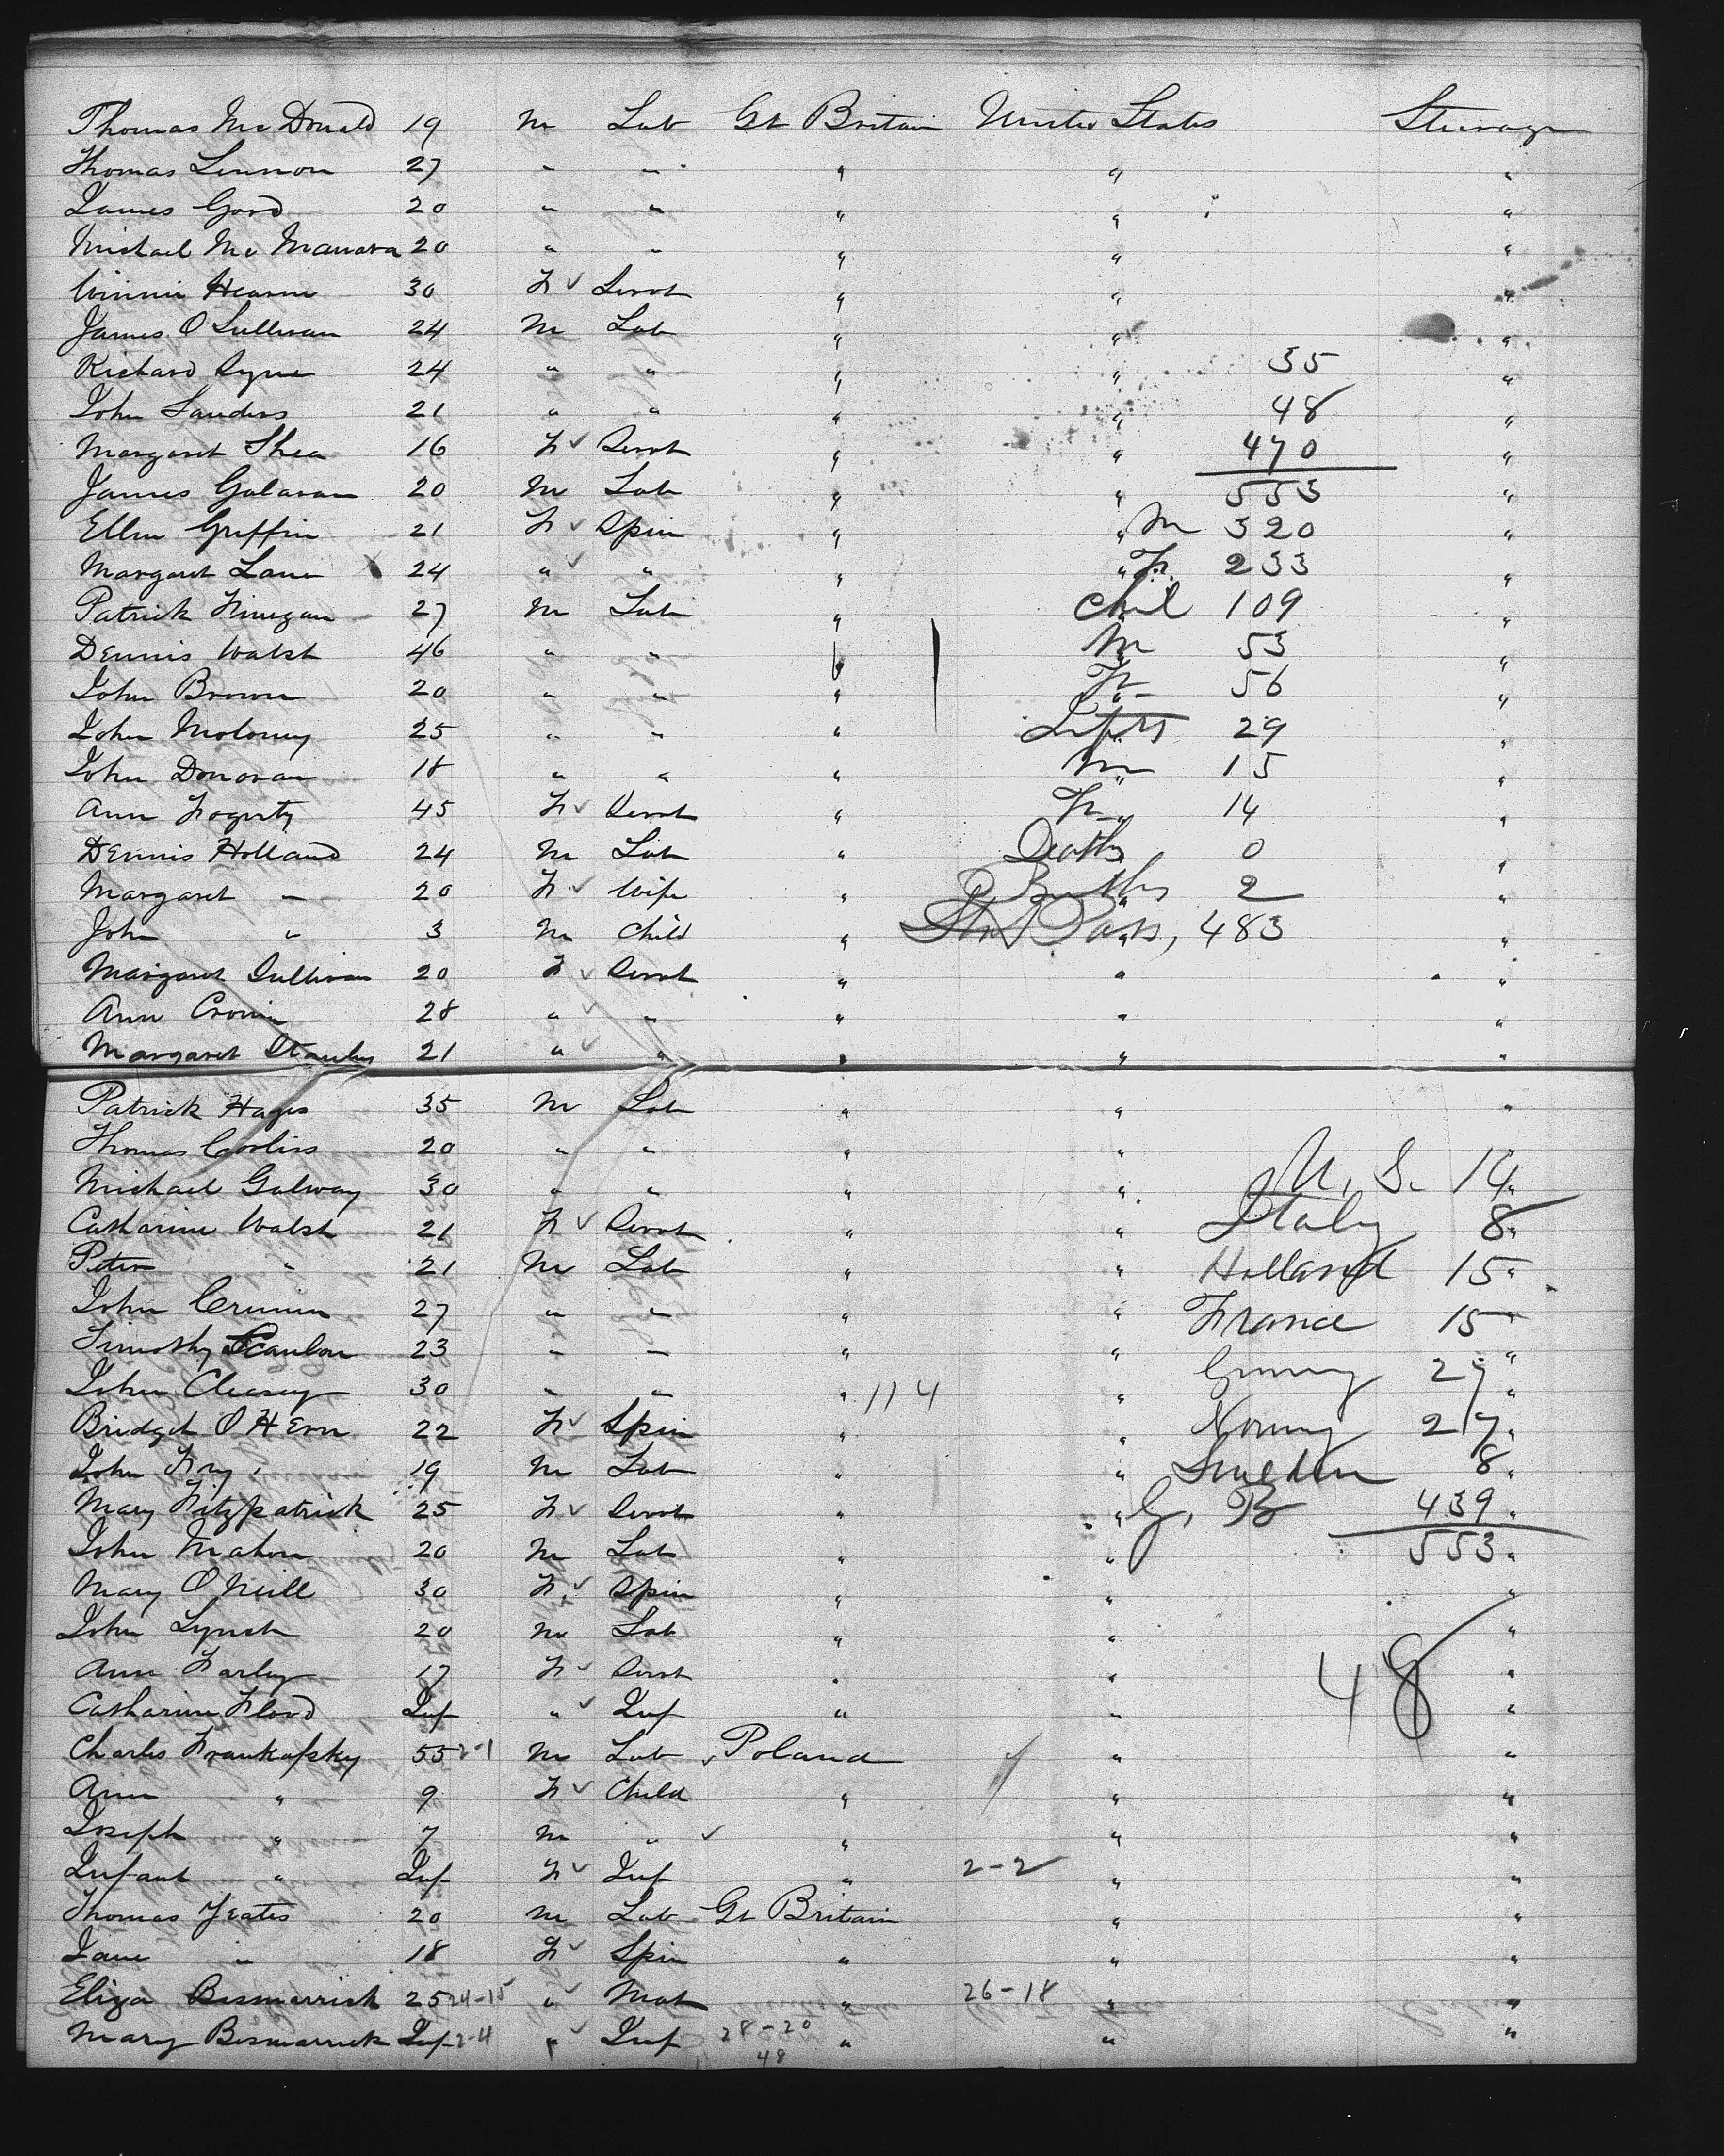 Thomas Mc Donald 19 M Lab Gt Britain United States Steerage
Thomas Lennon 27 " " " " "
James Gord 20 " " " " "
Michael Mc Manara 20 " " " " "
Winnie Hearne 30 F ✓ Servt " " "
James O Sullivan 24 M Lab " " "
Richard Syne 24 " " " " 35 "
John Sanders 21 " " " " 48 "
Margaret Shea 16 F ✓ Servt " " 470 "
James Galavan 20 M Lab " " 553 "
Ellen Griffin 21 F ✓ Spin " " M 320 "
Margaret Lane 24 " ✓ " " " F. 233 "
Patrick Finegan 27 M Lab " Chil 109 "
Dennis Walsh 46 " " " M 53 "
John Brown 20 " " " F 56 "
John Moloney 25 " " " Infts 29 "
John Donovan 18 " " " M 15 "
Ann Fogerty 45 F ✓ Servt " F 14 "
Dennis Holland 24 M Lab " Deaths 0 "
Margaret " 20 F ✓ Wife " Births 2 "
John " 3 M Child " Pass, 483 "
Margaret Sullivan 20 F ✓ Servt " " "
Ann Cronin 28 " ✓ " " " "
Margaret Stanley 21 " ✓ " " " "
Patrick Hayes 35 M Lab " " "
Thomas Corliss 20 " " " " "
Michael Galway 30 " " " " U. S. 14 "
Catharine Walsh 21 F ✓ Servt " " Italy 8 "
Peter " 21 M Lab " " Holland 15 "
John Crimin 27 " " " " France 15 "
Timothy Scanlon 23 " " " " "
John Clearey 30 " " " 114 " Germy 27 "
Bridget O Hern 22 F ✓ Spin " " Norway 27 "
John Fry 19 M Lab " " Sweden 8 "
Mary Fitzpatrick 25 F ✓ Servt " " G. B 439 "
John Mahon 20 M Lab " " 553 "
Mary O Neill 30 F ✓ Spin " " "
John Lynch 20 M Lab " " "
Ann Farley 17 F ✓ Servt " " 48 "
Catharine Flood Inf " ✓ Inf " " "
Charles Frankofsky 55 2-1 M Lab Poland " "
Ann " 9 F ✓ Child " " "
Joseph " 7 M " ✓ " " "
Infant " Inf F ✓ Inf " 2-2 " "
Thomas Yeates 20 M Lab Gt Britain " "
Jane " 18 F ✓ Spin " " "
Eliza Bismarrick 25 24-15 " ✓ Mat " 26-18 " "
Mary Bismarrick Inf 2-4 " ✓ Inf 28-20 " " "
48